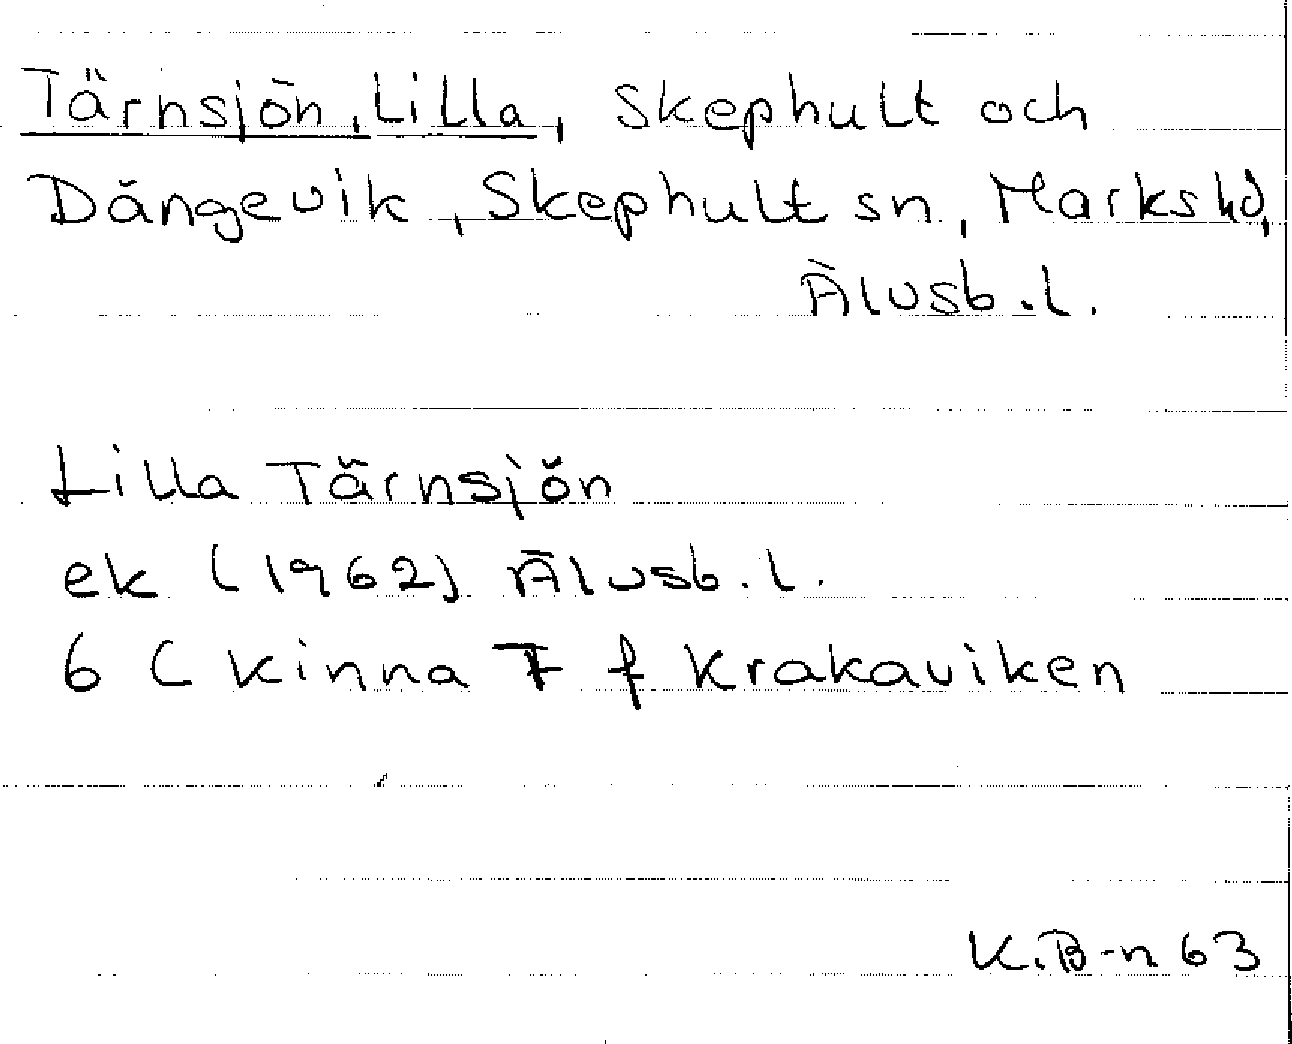 Tärnsjön, Lilla, Skephult och
Dängevik, Skephult sn, Marks hd,
Älvsb. l.
Lilla Tärnsjön
ek (1962) Älvsb. l.
6 C Kinna 7 f Krakaviken
K.B-n 63